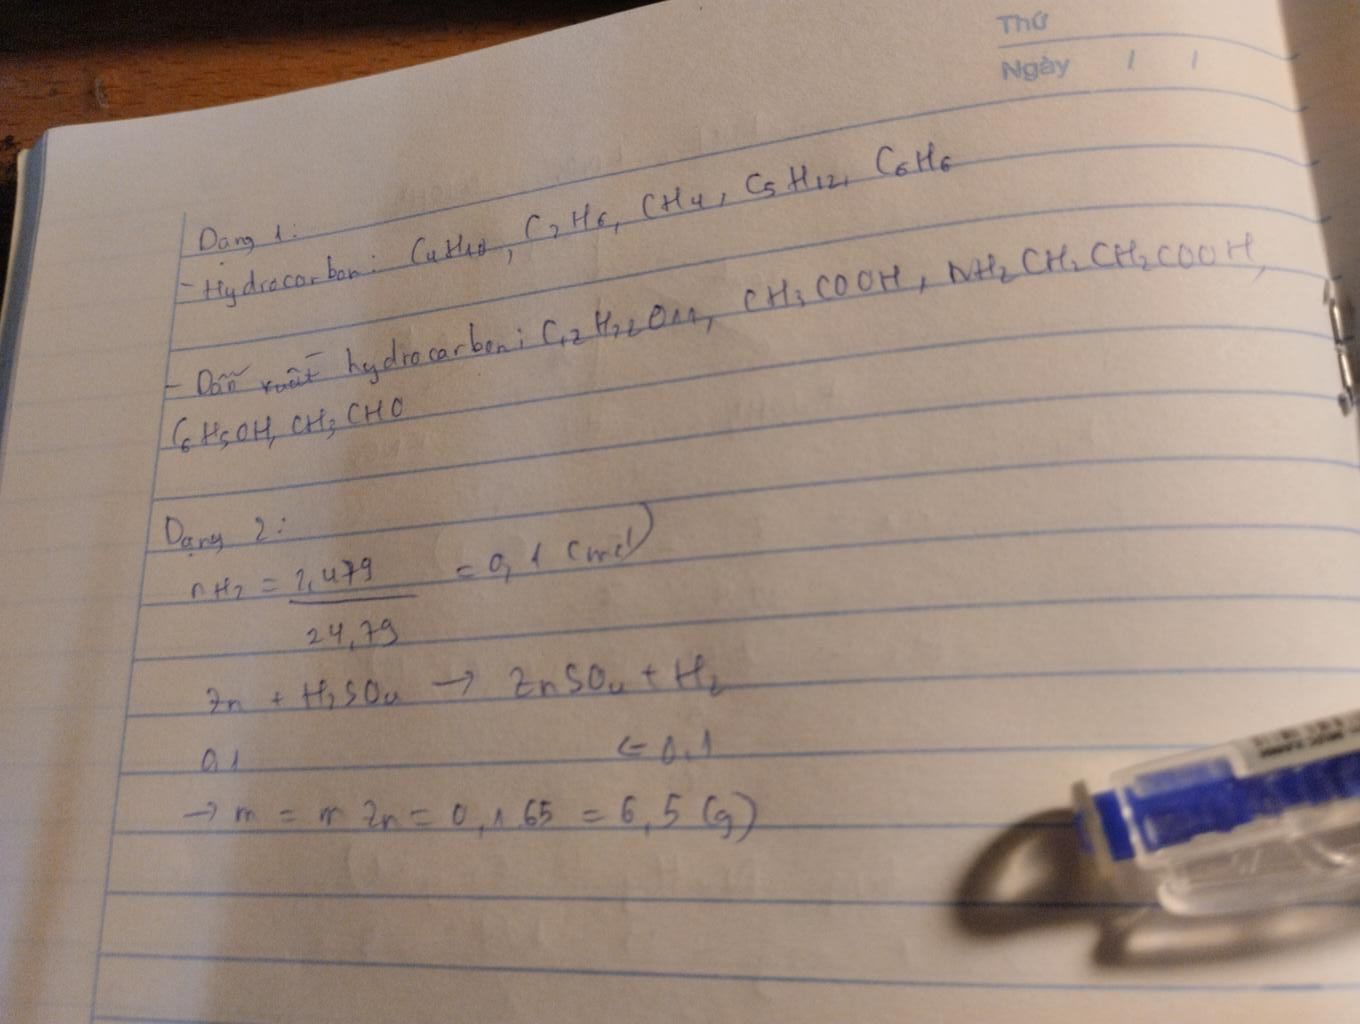 Thứ
Ngày / /
Dạng 1:
- Hydrocarbon: C4H10, C2H6, CH4, C5H12, C6H6
- Dẫn xuất hydrocarbon: C12H22O11, CH3COOH, NH2CH2CH2COOH,
C6H5OH, CH3CHO
Dạng 2:
nH2 = 2,479 = 0,1 (mol)
24,79
Zn + H2SO4 → ZnSO4 + H2
0,1 ← 0,1
→ m = m Zn = 0,1.65 = 6,5 (g)